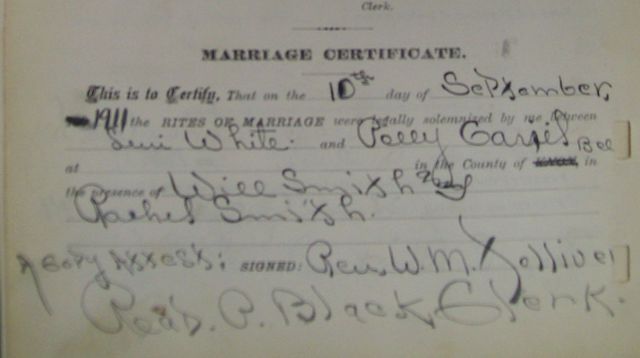 Clerk.
MARRIAGE CERTIFICATE.
This is to Certify, That on the 10th day of September,
1911 the RITES OF MARRIAGE were legally solemnized by me between
White. and Bell
at in the County of KNOX, in
the presence of Will Smith
Rachel Smith.
SIGNED: Rev. W. M.
P. Black Clerk.